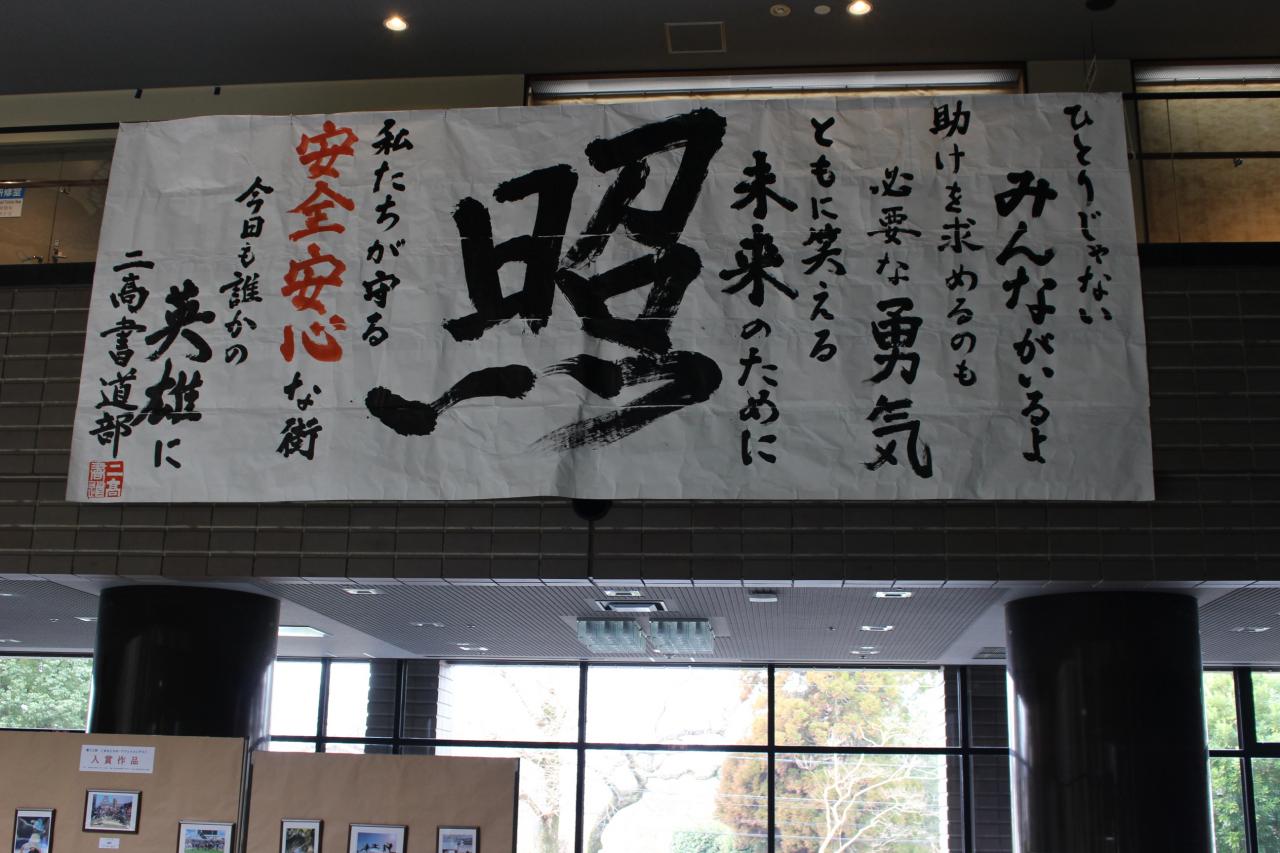 ひとりじゃない
みんながいるよ
助けを求めるのも
必要な勇気
ともに笑える
未来のために
昭
私たちが守る
安全安心な街
今日も誰かの
英雄に
二高書道部
二高
書道
入賞作品